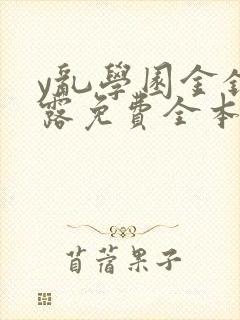 y亂學園金銀
露免費全本
苜蓿果子